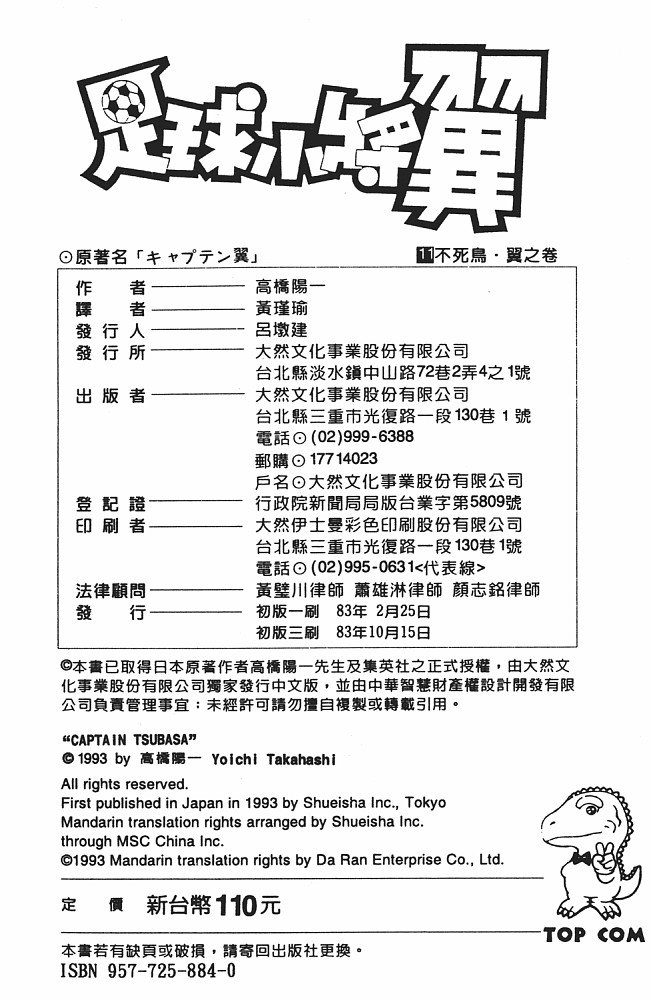 足球小將翼
⊙原著名「キャプテン翼」 11不死鳥・翼之卷
作者 高橋陽一
譯者 黃瑾瑜
發行人 呂墩建
發行所 大然文化事業股份有限公司
台北縣淡水鎮中山路72巷2弄4之1號
出版者 大然文化事業股份有限公司
台北縣三重市光復路一段130巷1號
電話⊙(02)999-6388
郵購⊙17714023
戶名⊙大然文化事業股份有限公司
登記證 行政院新聞局局版台業字第5809號
印刷者 大然伊士曼彩色印刷股份有限公司
台北縣三重市光復路一段130巷1號
電話⊙(02)995-0631<代表線>
法律顧問 黃璧川律師 蕭雄淋律師 顏志銘律師
發行 初版一刷 83年 2月25日
初版三刷 83年10月15日
©本書已取得日本原著作者高橋陽一先生及集英社之正式授權，由大然文
化事業股份有限公司獨家發行中文版，並由中華智慧財產權設計開發有限
公司負責管理事宜；未經許可請勿擅自複製或轉載引用。
“CAPTAIN TSUBASA”
©1993 by 高橋陽一 Yoichi Takahashi
All rights reserved.
First published in Japan in 1993 by Shueisha Inc., Tokyo
Mandarin translation rights arranged by Shueisha Inc.
through MSC China Inc.
©1993 Mandarin translation rights by Da Ran Enterprise Co., Ltd.
定價 新台幣110元
TOP COM
本書若有缺頁或破損，請寄回出版社更換。
ISBN 957-725-884-0